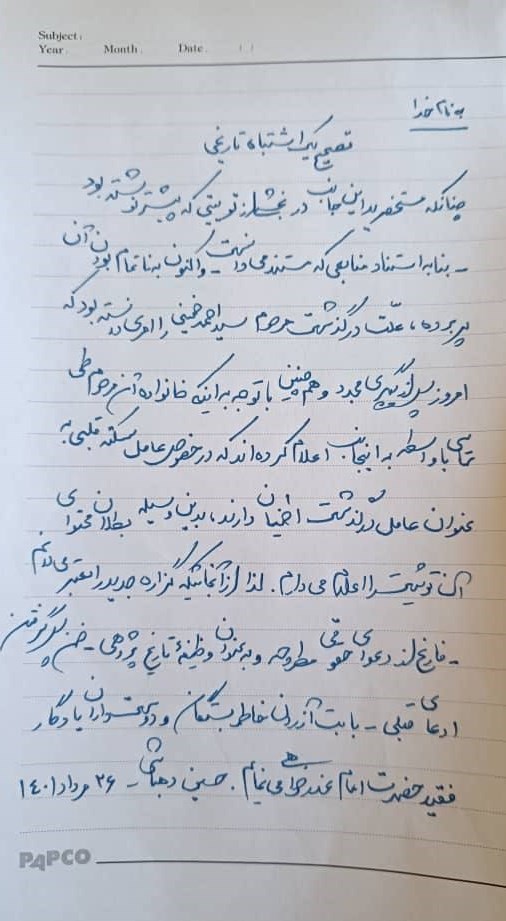 Subject:
Year. Month. Date. / /
به نام خدا
تصحیح یک اشتباه تاریخی
چنانکه مستحضرید این جانب در بخشی از توییتی که پیشتر نوشته بود
- بنا به استناد منابعی که مستند می دانست و اکنون به ناتمام بودن آن
پی برده، علّت درگذشت مرحوم سید احمد خمینی را امری دانسته بود که
امروز پس از پیگیری مجدد و هم چنین با توجه به اینکه خانواده آن مرحوم طی
تماسی با واسطه به اینجانب اعلام کرده اند که در خصوص عامل سکته قلبی به
عنوان عامل درگذشت اطمینان دارند، بدین وسیله بطلان محتوای
آن توئیت را اعلام می دارم. لذا از آنجائیکه گزاره جدید را معتبر می دانم
- فارغ از دعوای حقوقی مطروحه و به عنوان وظیفهٔ تاریخ پژوهی - ضمن پس گرفتن
ادعای قبلی - بابت آزردن خاطر بستگان و دوستداران یادگار
فقید حضرت امام عذرخواهی می نمایم. حسین دهباشی - ۲۶ مرداد ۱۴۰۱
PAPCO